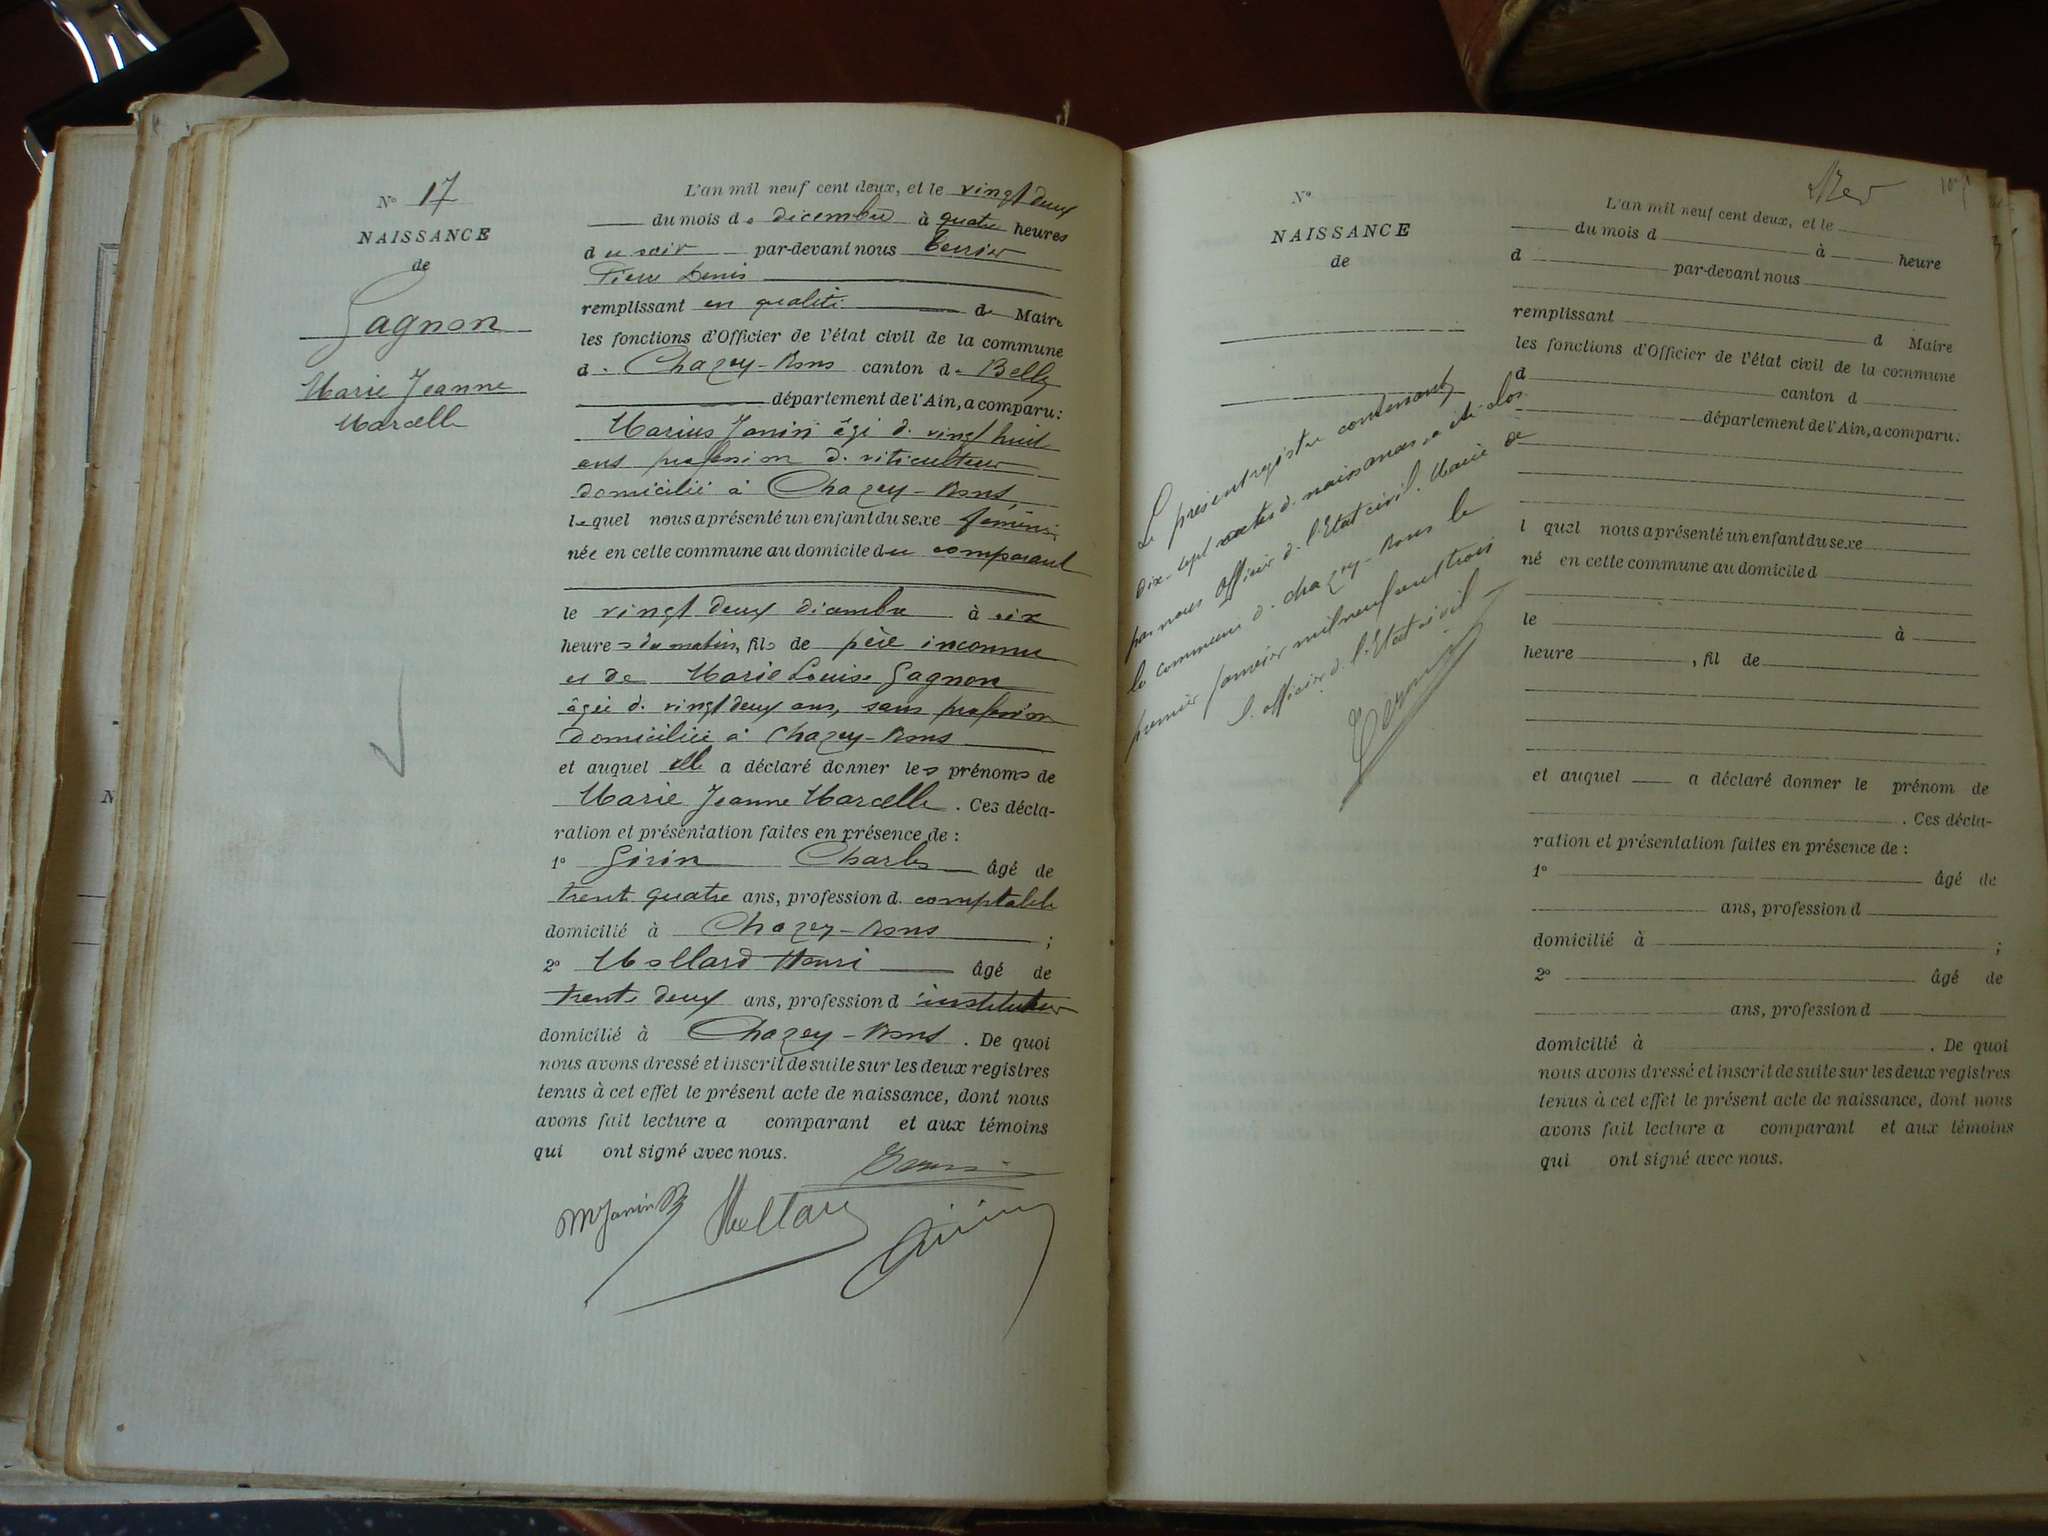 N° 17
NAISSANCE
de
Gagnon
Marie Jeanne
Marcelle
L'an mil neuf cent deux, et le vingt deux
du mois de décembre à quatre heures
du soir par-devant nous
Pierre Denis
remplissant en qualité de Maire
les fonctions d'Officier de l'état civil de la commune
de Chazey-Bons canton de Belley
département de l'Ain, a comparu:
Marius Janin âgé de vingt huit
ans profession de viticulteur
domicilié à Chazey-Bons
lequel nous a présenté un enfant du sexe féminin
née en cette commune au domicile du comparant
le vingt deux décembre à six
heures du matin, fils de père inconnu
et de Marie Louise Gagnon
âgée de vingt deux ans, sans profession
domiciliée à Chazey-Bons
et auquel elle a déclaré donner les prénoms de
Marie Jeanne Marcelle. Ces décla-
ration et présentation faites en présence de :
1° Girin Charles âgé de
trente quatre ans, profession de comptable
domicilié à Chazey-Bons ;
2° Mollard Henri âgé de
trente deux ans, profession d'instituteur
domicilié à Chazey-Bons. De quoi
nous avons dressé et inscrit de suite sur les deux registres
tenus à cet effet le présent acte de naissance, dont nous
avons fait lecture a comparant et aux témoins
qui ont signé avec nous.
M Janin
Mollard
Girin
N°
NAISSANCE
de
Le présent registre contenant
dix-sept actes de naissances a été clos
par nous Officier de l'Etat civil. Mairie de
la commune de Chazey-Bons le
premier janvier mil neuf cent trois
L'officier de l'Etat civil
L'an mil neuf cent deux, et le
du mois d à heure
d par-devant nous
remplissant d Maire
les fonctions d'Officier de l'état civil de la commune
d canton d
département de l'Ain, a comparu:
l quel nous a présenté un enfant du sexe
né en cette commune au domicile d
le à
heure , fil de
et auquel a déclaré donner le prénom de
. Ces décla-
ration et présentation faites en présence de :
1° âgé de
ans, profession d
domicilié à ;
2° âgé de
ans, profession d
domicilié à . De quoi
nous avons dressé et inscrit de suite sur les deux registres
tenus à cet effet le présent acte de naissance, dont nous
avons fait lecture a comparant et aux témoins
qui ont signé avec nous.